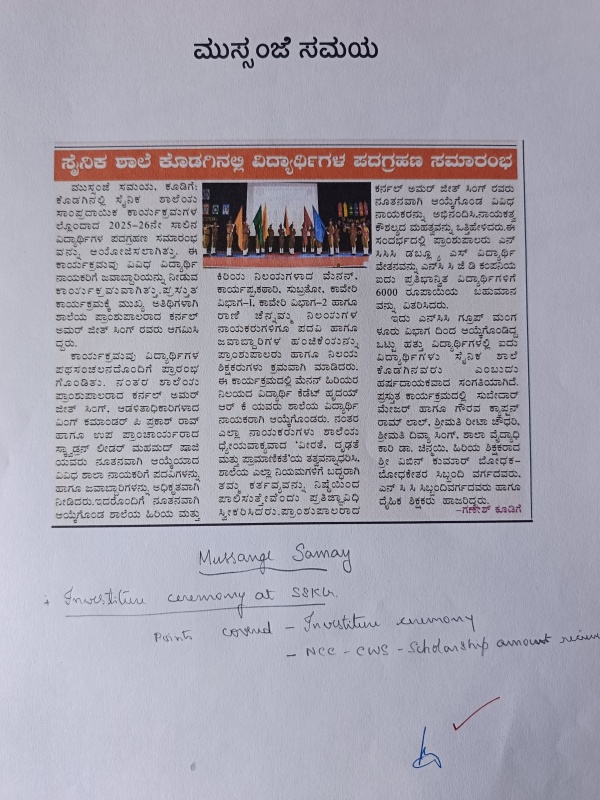 ಮುಸ್ಸಂಜೆ ಸಮಯ
ಸೈನಿಕ ಶಾಲೆ ಕೊಡಗಿನಲ್ಲಿ ವಿದ್ಯಾರ್ಥಿಗಳ ಪದಗ್ರಹಣ ಸಮಾರಂಭ
ಮುಸ್ಸಂಜೆ ಸಮಯ, ಕೂಡಿಗೆ:
ಕೊಡಗಿನಲ್ಲಿ ಸೈನಿಕ ಶಾಲೆಯ
ಸಾಂಪ್ರದಾಯಿಕ ಕಾರ್ಯಕ್ರಮಗಳ
ಲ್ಲೊಂದಾದ 2025-26ನೇ ಸಾಲಿನ
ವಿದ್ಯಾರ್ಥಿಗಳ ಪದಗ್ರಹಣ ಸಮಾರಂಭ
ವನ್ನು ಆಯೋಜಿಸಲಾಗಿತ್ತು. ಈ
ಕಾರ್ಯಕ್ರಮವು ವಿವಿಧ ವಿದ್ಯಾರ್ಥಿ
ನಾಯಕರಿಗೆ ಜವಾಬ್ದಾರಿಯನ್ನು ನೀಡುವ
ಕಾರ್ಯಕ್ರಮವಾಗಿತ್ತು.ಪ್ರಸ್ತುತ
ಕಾರ್ಯಕ್ರಮಕ್ಕೆ ಮುಖ್ಯ ಅತಿಥಿಗಳಾಗಿ
ಶಾಲೆಯ ಪ್ರಾಂಶುಪಾಲರಾದ ಕರ್ನಲ್
ಅಮರ್ ಜೀತ್ ಸಿಂಗ್ ರವರು ಆಗಮಿಸಿ
ದ್ದರು.
ಕಾರ್ಯಕ್ರಮವು ವಿದ್ಯಾರ್ಥಿಗಳ
ಪಥಸಂಚಲನದೊಂದಿಗೆ ಪ್ರಾರಂಭ
ಗೊಂಡಿತು. ನಂತರ ಶಾಲೆಯ
ಪ್ರಾಂಶುಪಾಲರಾದ ಕರ್ನಲ್ ಅಮರ್
ಜೀತ್ ಸಿಂಗ್, ಆಡಳಿತಾಧಿಕಾರಿಗಳಾದ
ವಿಂಗ್ ಕಮಾಂಡರ್ ಪಿ ಪ್ರಕಾಶ್ ರಾವ್
ಹಾಗೂ ಉಪ ಪ್ರಾಂಚಾರ್ಯರಾದ
ಸ್ಕ್ವಾಡ್ರನ್ ಲೀಡರ್ ಮಹಮದ್ ಷಾಜಿ
ಯವರು ನೂತನವಾಗಿ ಆಯ್ಕೆಯಾದ
ವಿವಿಧ ಶಾಲಾ ನಾಯಕರಿಗೆ ಪದವಿಗಳನ್ನು
ಹಾಗೂ ಜವಾಬ್ದಾರಿಗಳನ್ನು ಅಧಿಕೃತವಾಗಿ
ನೀಡಿದರು.ಇದರೊಂದಿಗೆ ನೂತನವಾಗಿ
ಆಯ್ಕೆಗೊಂಡ ಶಾಲೆಯ ಹಿರಿಯ ಮತ್ತು
ಕಿರಿಯ ನಿಲಯಗಳಾದ ಮೆನನ್,
ಕಾರ್ಯಪ್ಪ,ತಿಮ್ಮಯ್ಯ, ಸುಬ್ರತೋ, ಕಾವೇರಿ
ವಿಭಾಗ-1, ಕಾವೇರಿ ವಿಭಾಗ-2 ಹಾಗೂ
ರಾಣಿ ಚೆನ್ನಮ್ಮ ನಿಲಯಗಳ
ನಾಯಕರುಗಳಿಗೂ ಪದವಿ ಹಾಗೂ
ಜವಾಬ್ದಾರಿಗಳ ಹಂಚಿಕೆಯನ್ನು
ಪ್ರಾಂಶುಪಾಲರು ಹಾಗೂ ನಿಲಯ
ಶಿಕ್ಷಕರುಗಳು ಕ್ರಮವಾಗಿ ಮಾಡಿದರು.
ಈ ಕಾರ್ಯಕ್ರಮದಲ್ಲಿ ಮೆನನ್ ಹಿರಿಯರ
ನಿಲಯದ ವಿದ್ಯಾರ್ಥಿ ಕೆಡೆಟ್ ಹೃದಯ್
ಆರ್ ಕೆ ಯವರು ಶಾಲೆಯ ವಿದ್ಯಾರ್ಥಿ
ನಾಯಕರಾಗಿ ಆಯ್ಕೆಗೊಂಡರು. ನಂತರ
ಎಲ್ಲಾ ನಾಯಕರುಗಳು ಶಾಲೆಯ
ಧ್ಯೇಯವಾಕ್ಯವಾದ 'ವೀರತೆ, ದೃಢತೆ
ಮತ್ತು ಪ್ರಾಮಾಣಿಕತೆ'ಯ ತತ್ವವನ್ನಾಧರಿಸಿ,
ಶಾಲೆಯ ಎಲ್ಲಾ ನಿಯಮಗಳಿಗೆ ಬದ್ಧರಾಗಿ
ತಮ್ಮ ಕರ್ತವ್ಯವನ್ನು ನಿಷ್ಠೆಯಿಂದ
ಪಾಲಿಸುತ್ತೇವೆಂದು ಪ್ರತಿಜ್ಞಾವಿಧಿ
ಸ್ವೀಕರಿಸಿದರು.ಪ್ರಾಂಶುಪಾಲರಾದ
ಕರ್ನಲ್ ಅಮರ್ ಜೀತ್ ಸಿಂಗ್ ರವರು
ನೂತನವಾಗಿ ಆಯ್ಕೆಗೊಂಡ ವಿವಿಧ
ನಾಯಕರನ್ನು ಅಭಿನಂದಿಸಿ,ನಾಯಕತ್ವ
ಕೌಶಲ್ಯದ ಮಹತ್ವವನ್ನು ಒತ್ತಿಹೇಳಿದರು.ಈ
ಸಂದರ್ಭದಲ್ಲಿ ಪ್ರಾಂಶುಪಾಲರು ಎನ್
ಸಿಸಿಸಿ ಡಬ್ಲ್ಯೂ ಎಸ್ ವಿದ್ಯಾರ್ಥಿ
ವೇತನವನ್ನು ಎನ್‌ಸಿ ಸಿ ಜೆ ಡಿ ಕಂಪನಿಯ
ಐದು ಪ್ರತಿಭಾನ್ವಿತ ವಿದ್ಯಾರ್ಥಿಗಳಿಗೆ
6000 ರೂಪಾಯಿಯ ಬಹುಮಾನ
ವನ್ನು ವಿತರಿಸಿದರು.
ಇದು ಎನ್‌ಸಿಸಿ ಗ್ರೂಪ್ ಮಂಗ
ಳೂರು ವಿಭಾಗ ದಿಂದ ಆಯ್ಕೆಗೊಂಡಿದ್ದ
ಒಟ್ಟು ಹತ್ತು ವಿದ್ಯಾರ್ಥಿಗಳಲ್ಲಿ ಐದು
ವಿದ್ಯಾರ್ಥಿಗಳು ಸೈನಿಕ ಶಾಲೆ
ಕೊಡಗಿನವರು ಎಂಬುದು
ಹರ್ಷದಾಯಕವಾದ ಸಂಗತಿಯಾಗಿದೆ.
ಪ್ರಸ್ತುತ ಕಾರ್ಯಕ್ರಮದಲ್ಲಿ ಸುಬೇದಾರ್
ಮೇಜರ್ ಹಾಗೂ ಗೌರವ ಕ್ಯಾಪ್ಟನ್
ರಾಮ್ ಲಾಲ್, ಶ್ರೀಮತಿ ರೀಟಾ ಚೌಧರಿ,
ಶ್ರೀಮತಿ ದಿವ್ಯಾ ಸಿಂಗ್, ಶಾಲಾ ವೈದ್ಯಾಧಿ
ಕಾರಿ ಡಾ. ಚಿನ್ಮಯಿ, ಹಿರಿಯ ಶಿಕ್ಷಕರಾದ
ಶ್ರೀ ವಿಬಿನ್ ಕುಮಾರ್ ಬೋಧಕ-
ಬೋಧಕೇತರ ಸಿಬ್ಬಂದಿ ವರ್ಗದವರು,
ಎನ್ ಸಿ ಸಿ ಸಿಬ್ಬಂದಿವರ್ಗದವರು ಹಾಗೂ
ದೈಹಿಕ ಶಿಕ್ಷಕರು ಹಾಜರಿದ್ದರು.
-ಗಣೇಶ್ ಕೂಡಿಗೆ
Mussange Samay
Investiture ceremony at SSKG.
Points covered - Investiture ceremony
- NCC - CWS - Scholarship amount